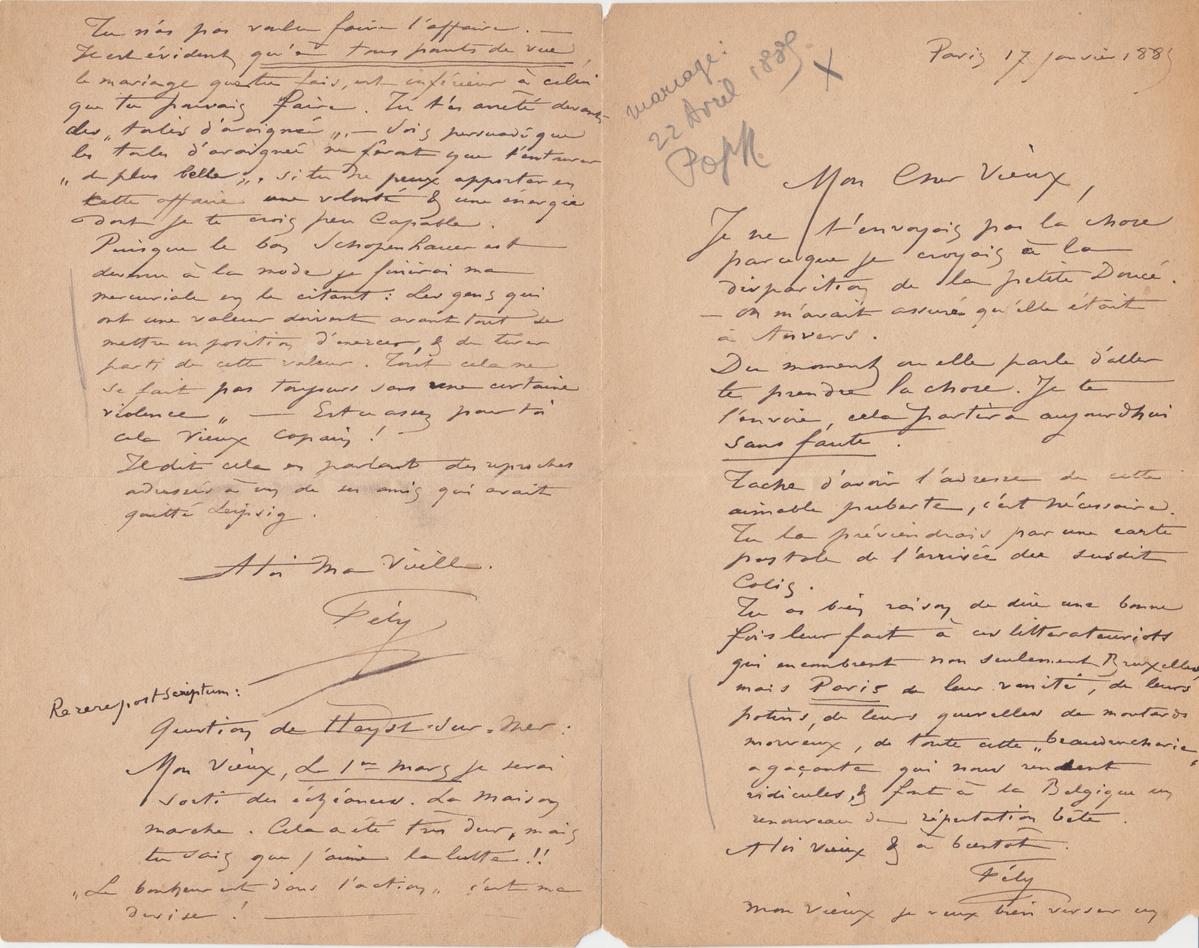 Paris 17 Janvier 1889
mariage:
22 Avril 1889
X
Mon Cher Vieux,
Je ne t'envoyais pas la chose
parceque je croyais à la
disparition de la petite Doucé.
— on m'avait assuré qu'elle était
à Anvers.
Du moment où elle parle d'aller
te prendre la chose. Je te
l'envoie, cela partira aujourdhui
sans faute.
Tache d'avoir l'adresse de cette
aimable puberte, c'est nécessaire.
Tu la préviendrais par une carte
postale de l'arrivée du susdit
Colis.
Tu as bien raison de dire une bonne
fois leur fait à ces litterateuriots
qui encombrent non seulement Bruxelles,
mais Paris de leur vanité, de leurs
potins, de leurs querelles de moutards
morveux, de toute cette
agaçante qui nous rendent
ridicules, & font à la Belgique un
renouveau de réputation bête.
A toi vieux & à bientôt.
Fély
mon vieux je veux bien verser un
Tu n'as pas voulu faire l'affaire. —
Il est évident qu'à tous points de vue,
le mariage que tu fais, est inférieur à celui
que tu pouvais faire. Tu t'es arrêté devant
des „toiles d'araignée„. — Sois persuadé que
les toiles d'araignée ne feront que t'entourer
„de plus belle„, si tu ne peux apporter en
cette affaire une volonté & une énergie
dont je te crois peu Capable.
Puisque le bon Schopenhauer est
devenu à la mode je finirai ma
mercuriale en le citant: Les gens qui
ont une valeur doivent avant tout se
mettre en position d'exercer, & de tirer
parti de cette valeur. Tout cela ne
se fait pas toujours sans une certaine
violence „ — Est-ce assez pour toi
cela vieux copain!
Il dit cela en parlant des reproches
adressés à un de ses amis qui avait
quitté Leipsig.
A toi Ma Vieille.
Fély
Rererepostscriptum:
Question de Heyst-sur-Mer:
Mon Vieux, Le 1er mars je serai
sorti des échéances. La Maison
marche. Cela a été très dur, mais
tu sais que j'aime la lutte!!
„Le bonheur est dans l'action„ c'est ma
devise! —